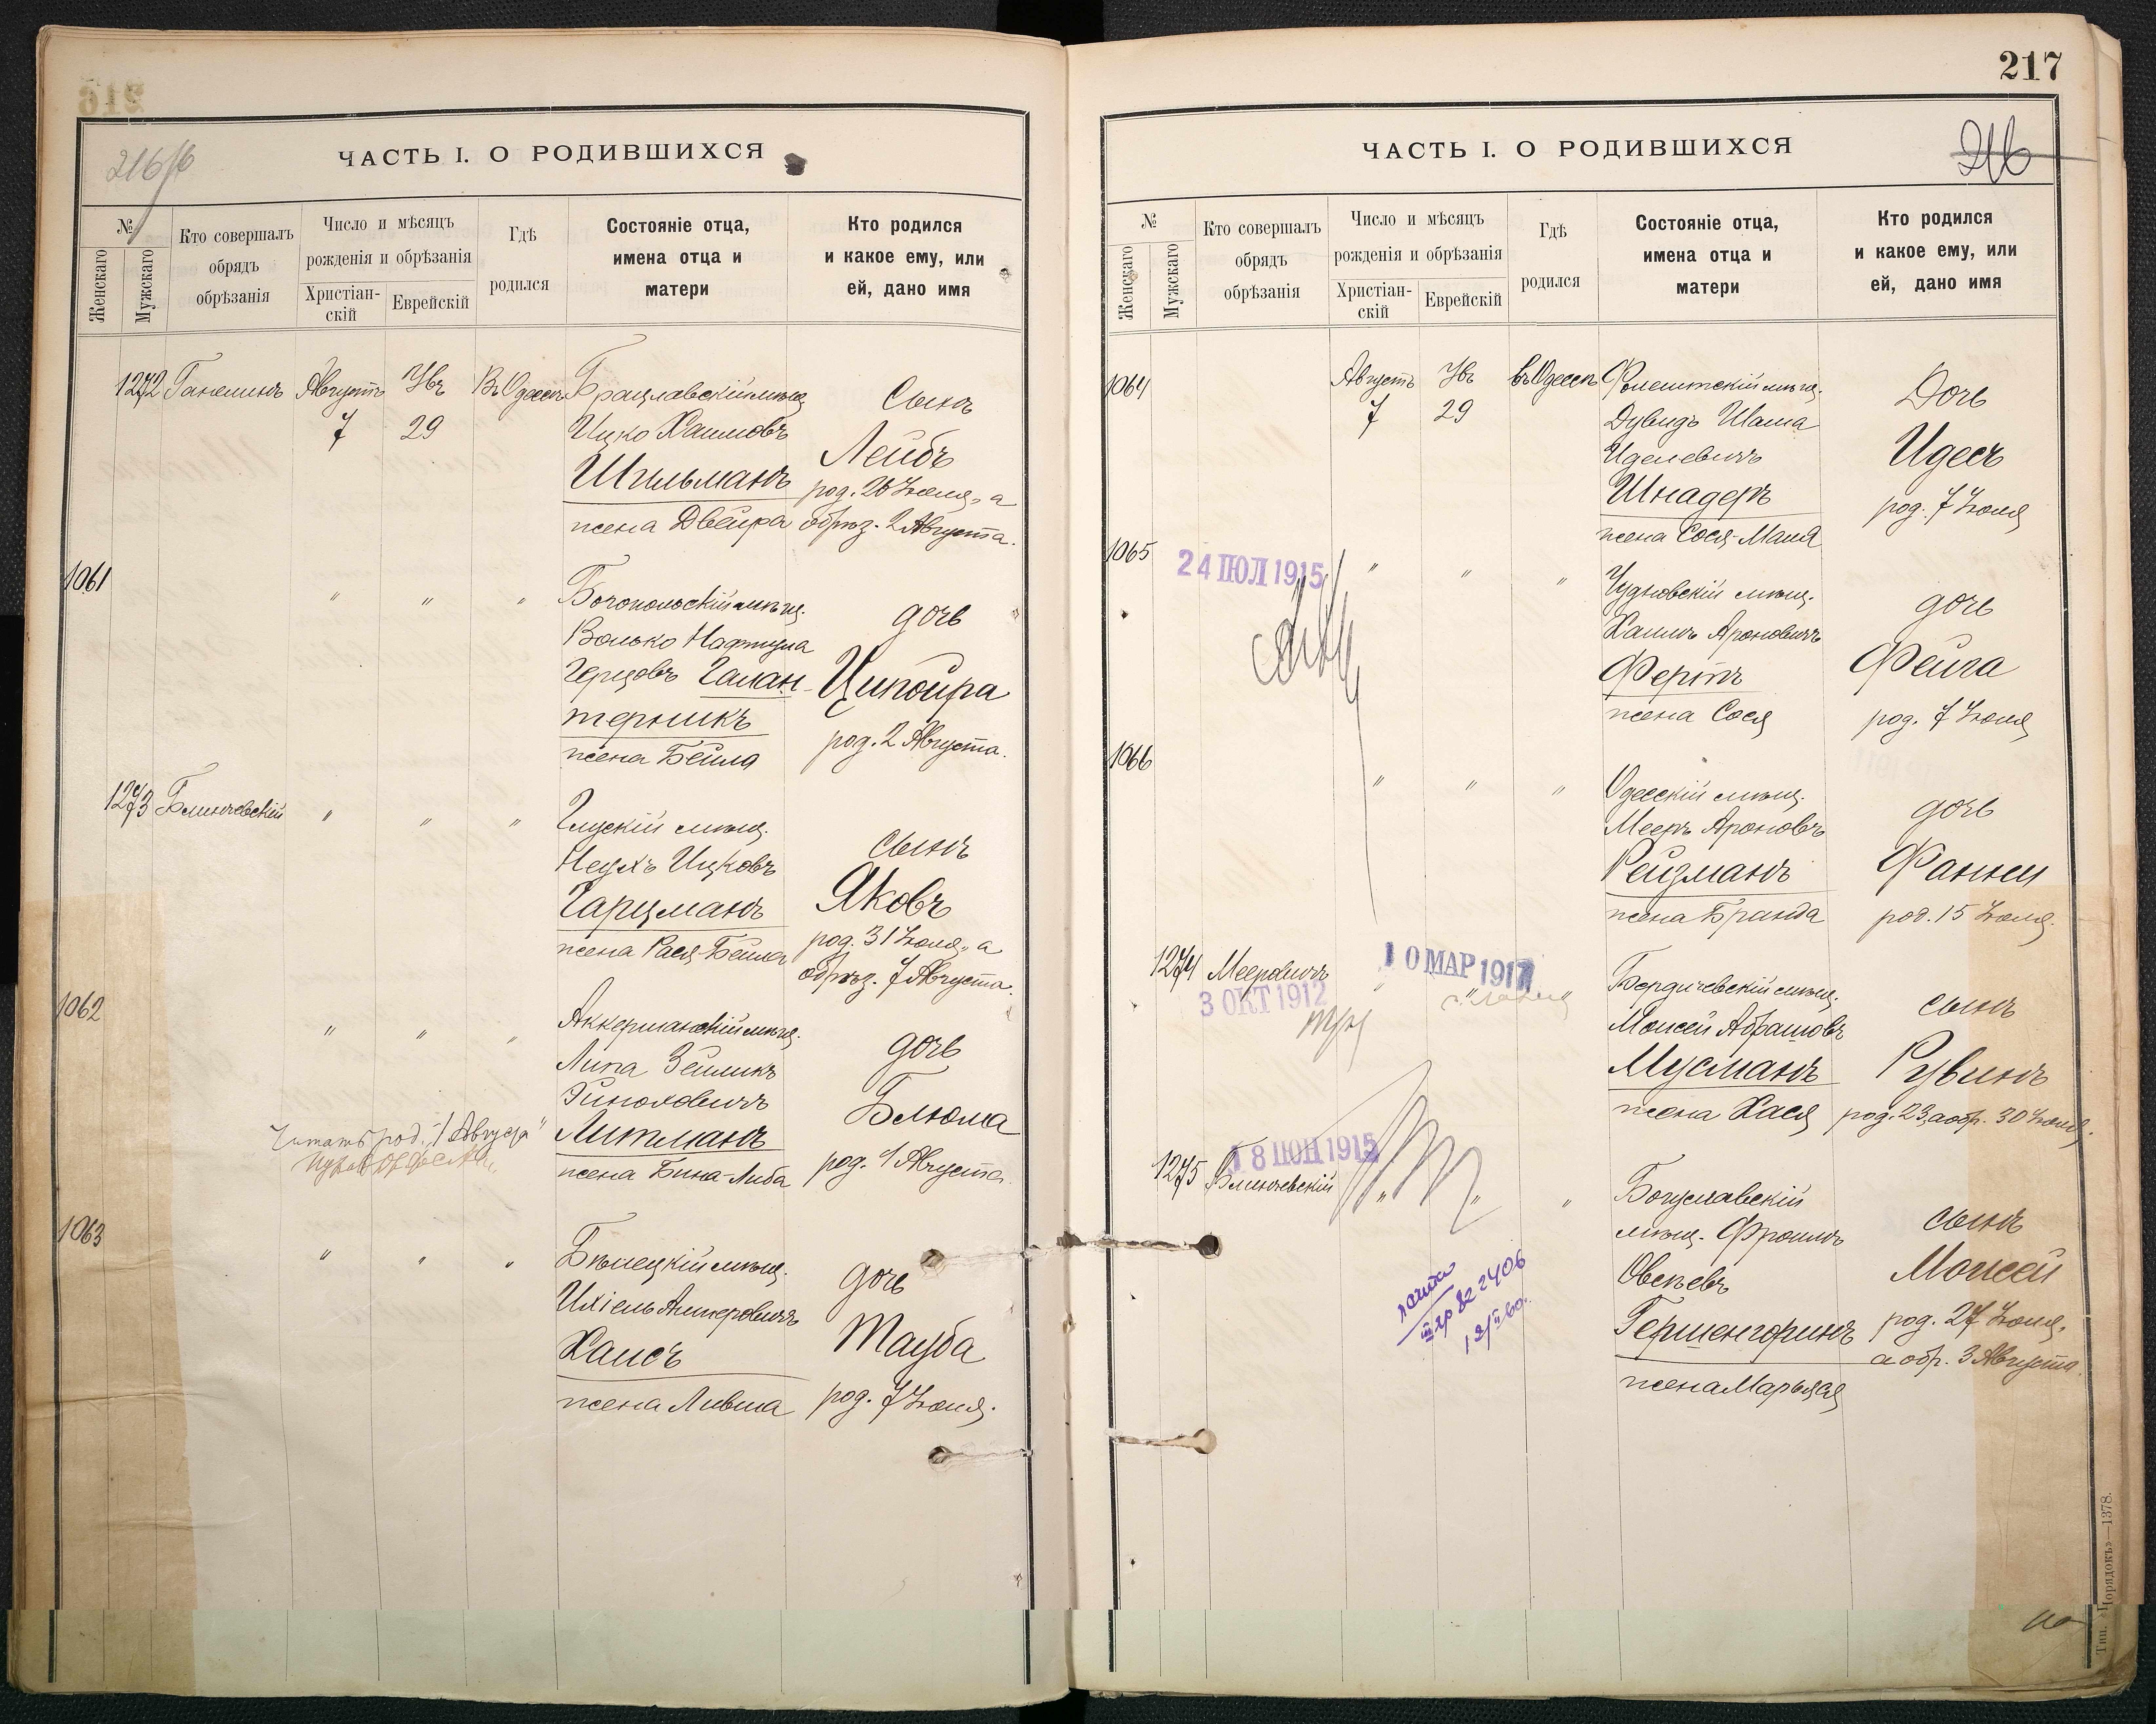 216
ЧАСТЬ I. О РОДИВШИХСЯ
№
Женскаго
Мужскаго
Кто совершалъ
обрядъ
обрѣзанія
Число и мѣсяцъ
рожденія и обрѣзанія
Христіан-
скій
Еврейскій
Гдѣ
родился
Состояніе отца,
имена отца и
матери
Кто родился
и какое ему, или
ей, дано имя
1272
Августъ
7
Увъ
29
Въ Одессѣ
Брацлавскій мѣщ.
Ицко Хаимовъ
Шильманъ
жена Двейра
Сынъ
Лейбъ
род. 26 Іюля, а
обрѣз. 2 Августа.
1061
"
"
"
Богопольскій мѣщ.
Волько Нафтула
Герцовъ Галан-
терникъ
жена Бейла
дочь
Ципойра
род. 2 Августа.
1273
Блинчевскій
"
"
"
Глускій мѣщ.
Неухъ Ицковъ
Гарцманъ
жена Рася-Бейла
сынъ
Яковъ
род. 31 Іюля, а
обрѣз. 7 Августа.
1062
"
"
"
Аккерманскій мѣщ.
Липа Зейликъ
Литманъ
жена Бина-Либа
дочь
Блюма
род. 1 Августа
Читать род. "1 Августа"
1063
"
"
"
Бѣлецкій мѣщ.
Ихіель Аншеровичъ
Хаисъ
жена Лившa
дочь
Тауба
род. 7 Іюля.
217
216
ЧАСТЬ I. О РОДИВШИХСЯ
№
Женскаго
Мужскаго
Кто совершалъ
обрядъ
обрѣзанія
Число и мѣсяцъ
рожденія и обрѣзанія
Христіан-
скій
Еврейскій
Гдѣ
родился
Состояніе отца,
имена отца и
матери
Кто родился
и какое ему, или
ей, дано имя
1064
Августъ
7
Увъ
29
въ Одессѣ
Фолештскій мѣщ.
Дувидъ Шама
Иделевичъ
Шнадеръ
жена Сося-Маня
Дочь
Идесъ
род. 7 Іюля
1065
24 ІЮЛ 1915
"
"
"
Чудновскій мѣщ.
Хаимъ Ароновичъ
Фертъ
жена Сося
дочь
Фейга
род. 7 Іюля
1066
"
"
"
Одесскій мѣщ.
Мееръ Ароновъ
Рейзманъ
жена Бранда
дочь
Фанни
род. 15 Іюля.
1274
Мееровичъ
3 ОКТ 1912
10 МАР 1917
Бердичевскій мѣщ.
Моисей Абрамовъ
Мусманъ
жена Хася
сынъ
Рувинъ
род. 23, а обр. 30 Іюля.
1275
18 ІЮН 1915
Блинчевскій
"
"
"
Богуславскій
мѣщ. Фроимъ
Овсѣевъ
Гершенгоринъ
жена Марьяся
сынъ
Моисей
род. 27 Іюля,
а обр. 3 Августа.
Тип. «Порядокъ»—1378.